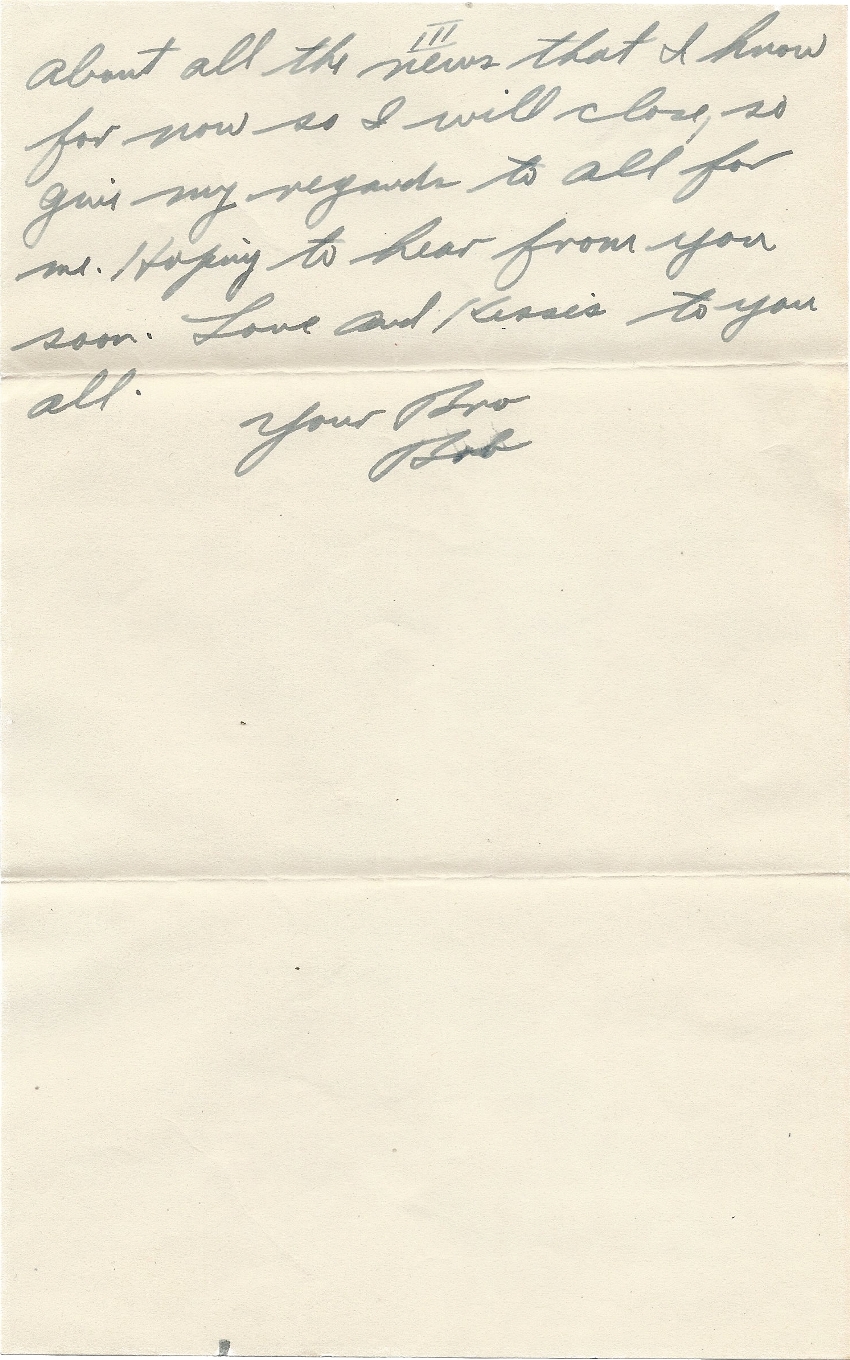 III
about all the news that I know
for now so I will close, so
give my regards to all for
me. Hoping to hear from you
soon. Love and Kisses to you
all.
Your Bro
Bob